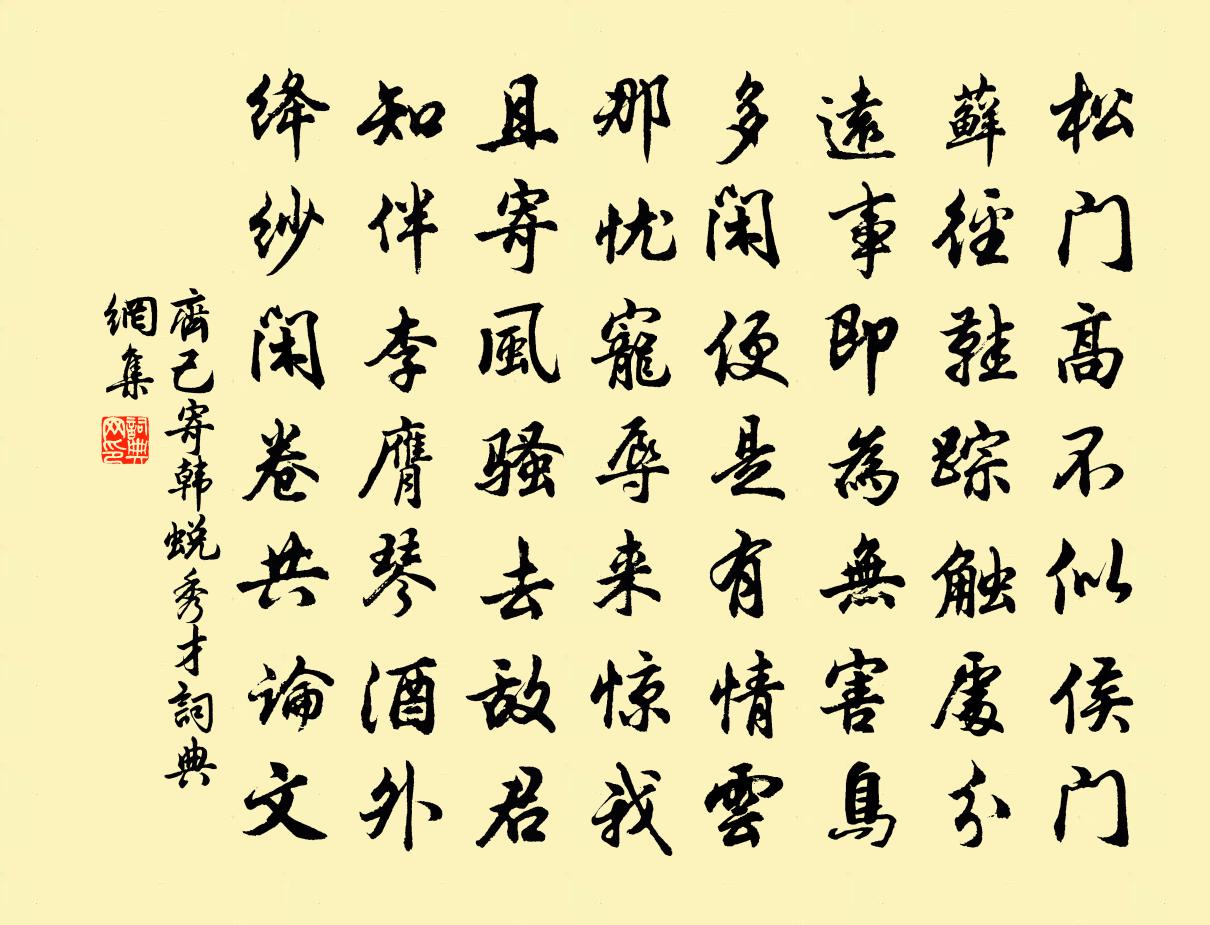 松门高不似侯门
藓徑鞋踪触處分
遠事即為無害鳥
多闲便是有情雲
那忧寵辱来惊我
且寄風骚去敌君
知伴李膺琴酒外
绛纱闲卷共论文
齊己寄韩蜕秀才詞典
網集
詞典
网印